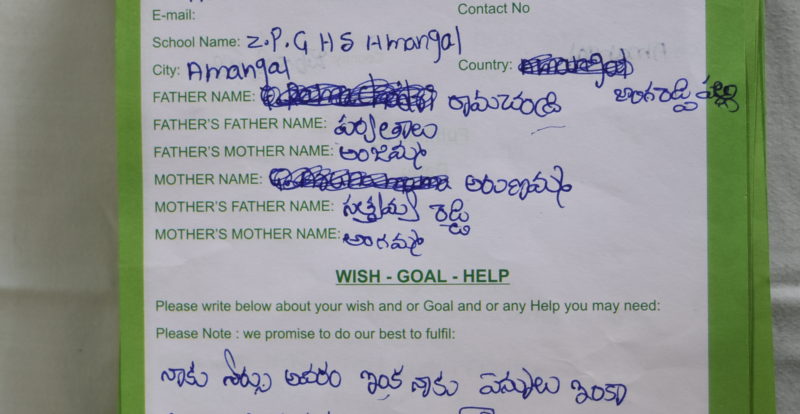 E-mail:
Contact No
School Name: Z.P.G H S Amangal
City: Amangal Country:
FATHER NAME: రామచంద్రి
FATHER'S FATHER NAME: పర్వతాలు
FATHER'S MOTHER NAME: అంజమ్మ
MOTHER NAME: అరుణమ్మ
MOTHER'S FATHER NAME: రెడ్డి
MOTHER'S MOTHER NAME: అంగమ్మ
WISH - GOAL - HELP
Please write below about your wish and or Goal and or any Help you may need:
Please Note : we promise to do our best to fulfil:
నాకు ఇంక నాకు పెన్నులు ఇంకా